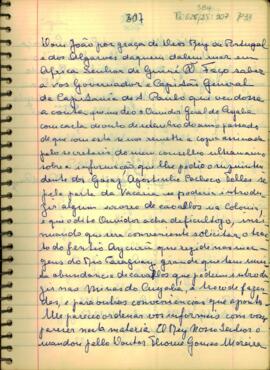 307
Dom João por graça de Deos Rey de Portugal
e dos Algarves daquem dalem mar em
Africa Senhor de Guiné &. Faço saber
a vós Governador e Capitão General
da Capitania de S. Paulo que vendo se
a conta que me deo o Ouvidor Geral do Cuyabá
com carta de outo de setembro do anno passado
de que com esta se vos remette a copia assinada
pelo secretario do meu conselho ultramarino
sobre a informação que lhe pedio o superinten
dente dos Goiaz Agostinho Pacheco Telles se
pela parte da Vacaria se poderia introdu
zir algum soccorro de cavallos na Colonia,
e que o dito Ouvidor acha dificultozo, insi
nuando que era conveniente solicitar o trac
to do gentio Aycurú que rezide nas mar
gens do Rio Paraguay, grande que tem u
a abundancia de cavallos que podem introdu
zir nas Minas do Cuyabá, a troco de fazen
das, e para outras conveniencias que aponta.
Me pareceo ordenar vos informeis com vos
so parecer nesta materia. El Rey Nosso Senhor o
mandou pello Doutor Thomé Gomes Moreira